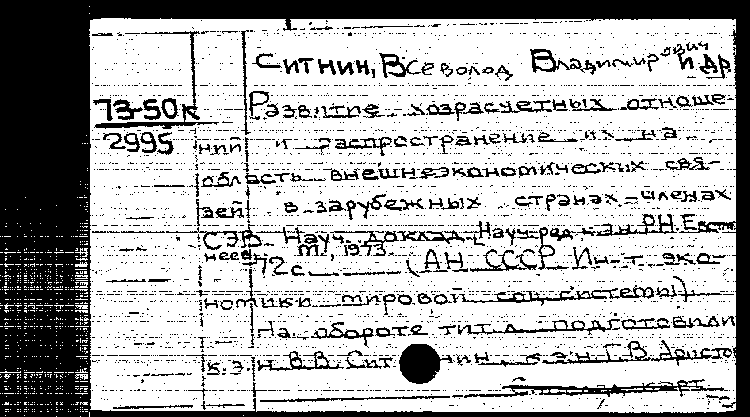 Ситнин, Всеволод Владимирович и др
73-50к
2995
Развитие хозрасчетных отноше-
ний и распространение их на
область внешнеэкономических свя-
зей в зарубежных странах-членах
СЭВ. Науч. доклад. Науч. ред. к.э.н. Р.Н.
М., 1973.
72 с. (АН СССР. Ин-т эко-
номики мировой соц. системы).
На обороте тит. л. подготовили
к.э.н. В.В. Ситнин, к.э.н. Г.В.